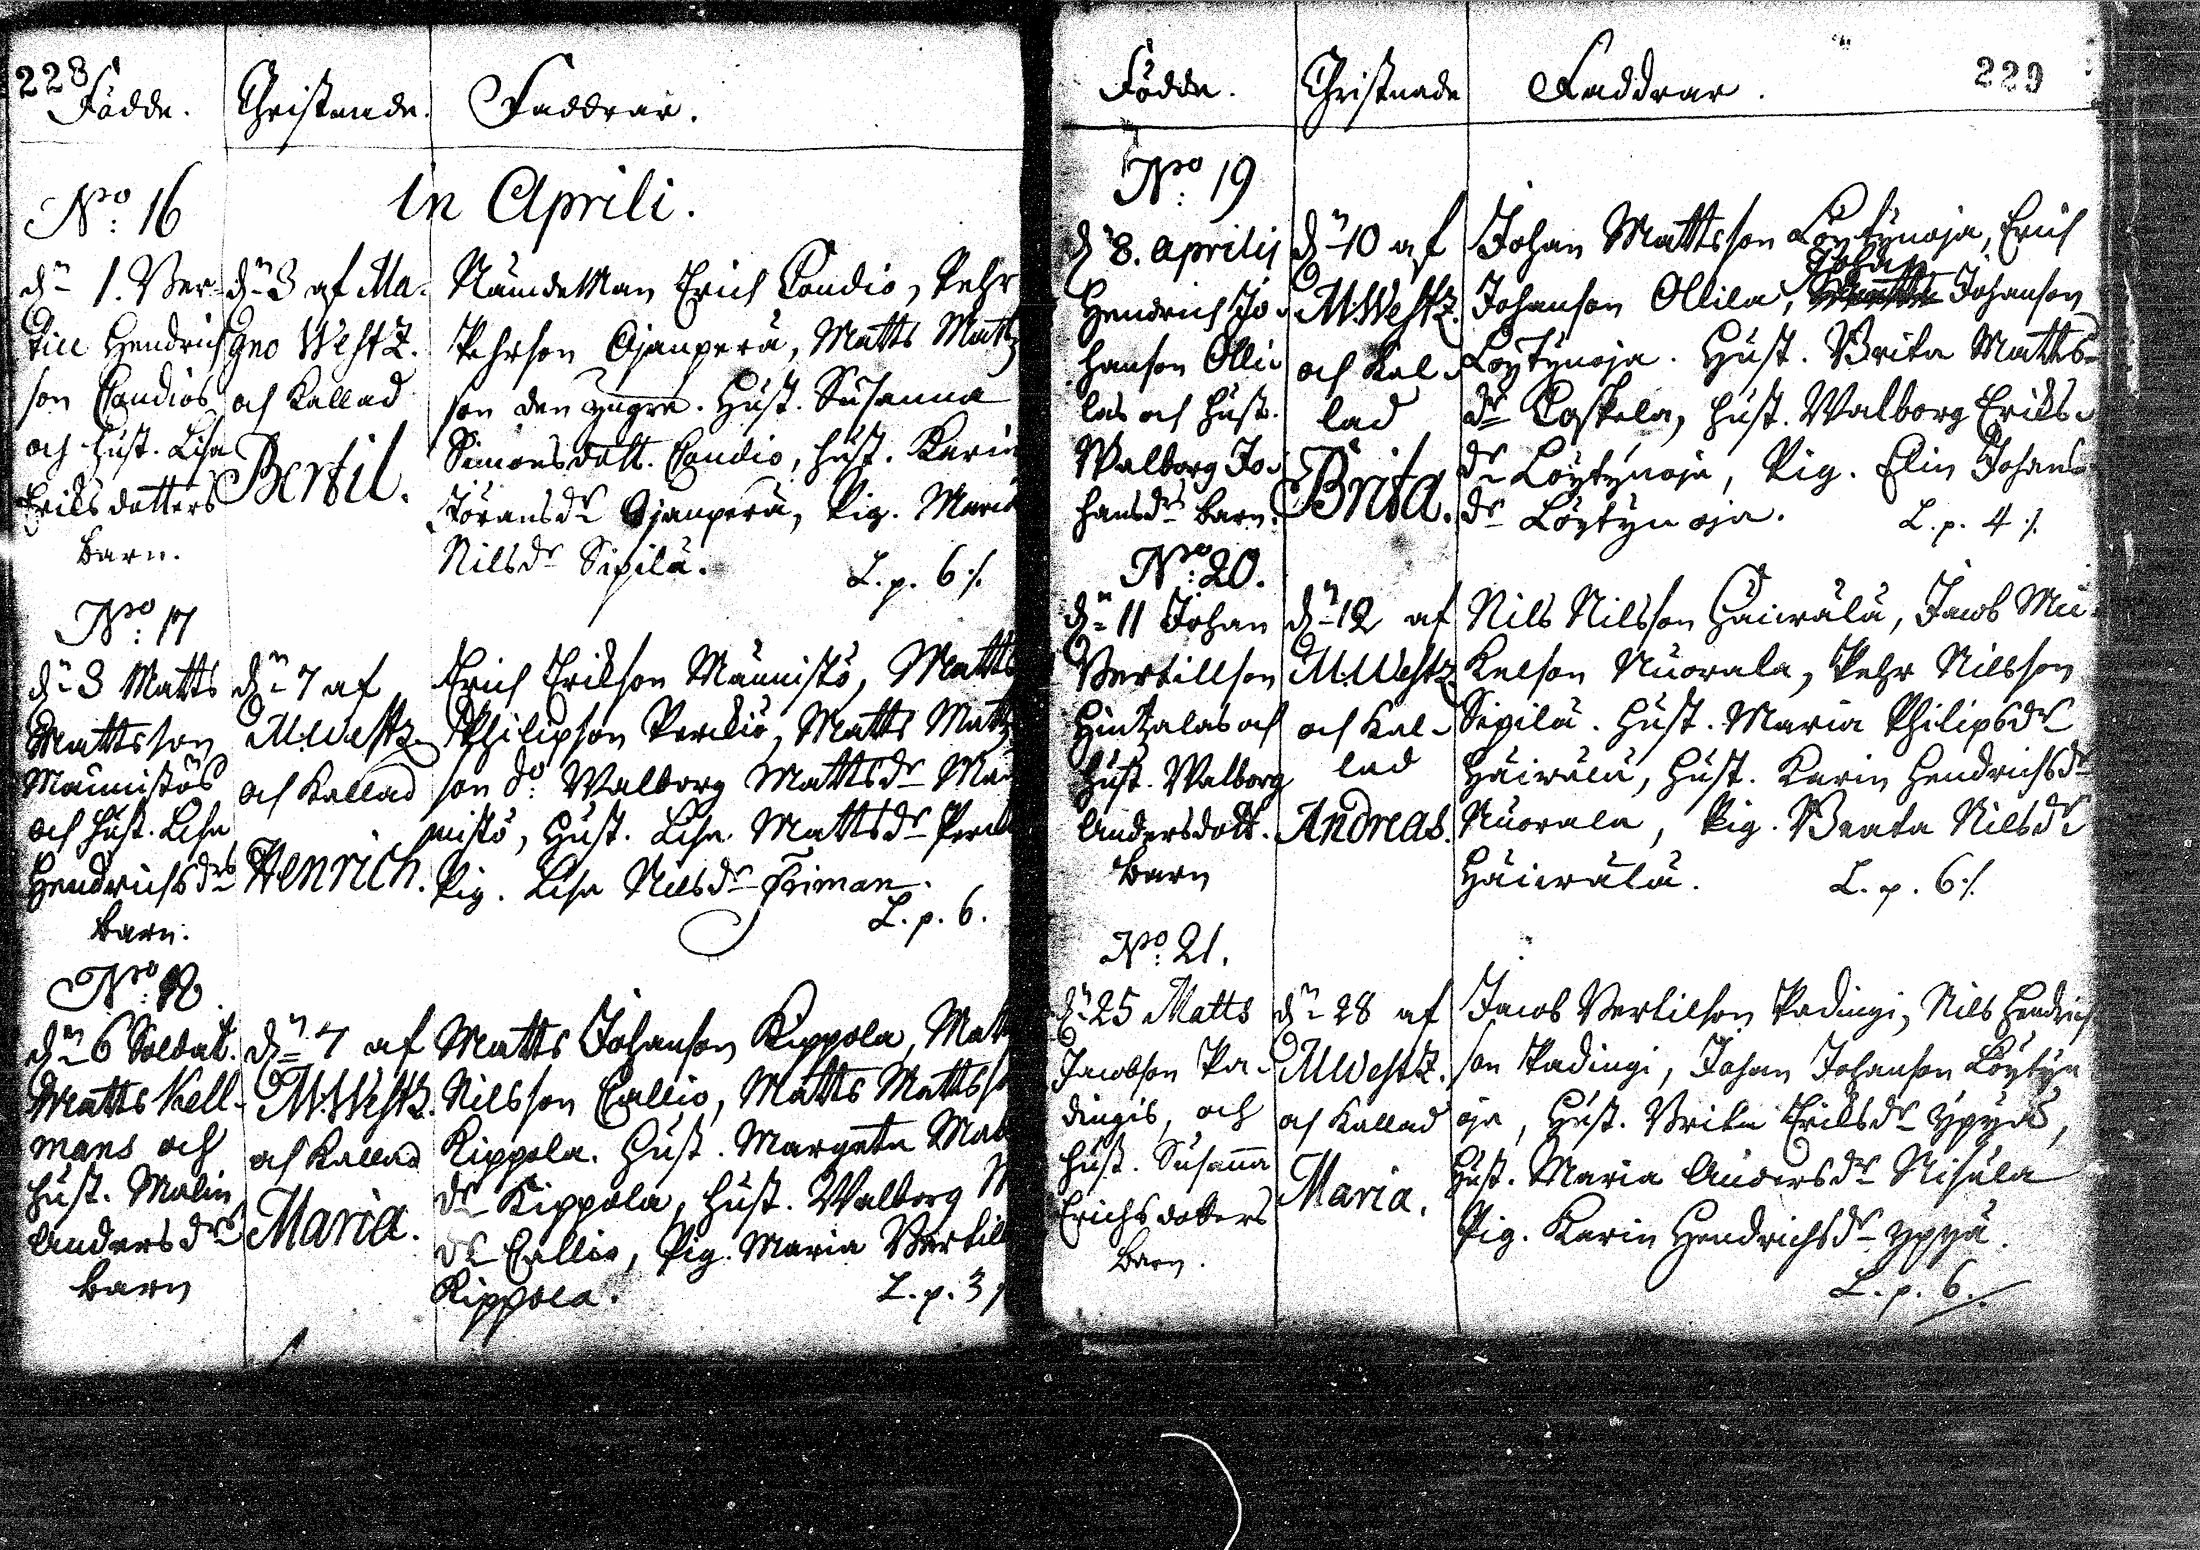 228
Födde. Christnade. Faddrar.
in Aprili.
No: 16
dn 1. Ber-
till Hendrich
son Candios
och hust. Lisa
Eriks dotters
barn.
dn 3 af Ma-
gno Westz.
och kallad
Bertil.
Nämdeman Erich Candio, Pehr
Pehrson Ojanperä, Matts Matts
son den yngre. Hust. Susanna
Simonsdott. Candio, hust. Karin
Jöransdr Ojanperä, Pig. Maria
Nilsdr Sipilä.
L. p. 6 ./.
No: 17
dn 3 Matts
Mattsson
Männistös
och hust. Lisa
Hendrichsdrs
barn.
dn 7 af
M. Westz.
och kallad
Henrich.
Erich Erikson Männistö, Matts
Philipson Perckiö, Matts Matts
son do: Walborg Mattsdr Män
nistö, Hust. Lisa Mattsdr
Pig. Lisa Nilsdr Friman.
L. p. 6.
No: 18
dn 6 Soldat.
Matts Kell-
mans och
hust. Malin
Andersdrs
barn
dn 7 af
M. Westz.
och kallad
Maria.
Matts Johanson Kippola,
Nilsson Callio, Matts Mattsso
Kippola. Hust. Margeta
dr Kippola, hust. Walborg
dr Callio, Pig. Maria Bertil
Kippola.
L. p. 3
229
Födde. Christnade Faddrar.
No: 19
d 8. Aprilis
Hendrich Jo-
hanson Olli-
las och hust.
Walborg Jo-
hansdrs barn.
dn 10 af
M: Westz.
och kal-
lad
Brita.
Johan Mattsson Löytynoja, Erich
Johan
Johanson Ollila, Johanson
Löytynoja. Hust. Brita Matts-
dr Coskela, hust. Walborg Eriks-
dr Löytynoja, Pig. Elin Johans-
dr Löytynoja.
L. p. 4 ./.
No: 20.
dn 11 Johan
Bertillson
Hintzalas och
hust. Walborg
Andersdott.
barn
dn 12 af
M. Westz
och kal-
lad
Andreas.
Nils Nilsson Häiwälä, Jacob Mi-
kelson Nuorala, Pehr Nilsson
Sipilä. Hust. Maria Philipsdr
Häiwälä, hust. Karin Hendrichsdr
Nuorala, Pig. Beata Nilsdr
Häiwälä.
L. p. 6 ./.
No: 21.
dn 25 Matts
Jacobson Pa-
dingis, och
hust. Susanna
Erichsdotters
barn.
dn 28 af
M Westz.
och kallad
Maria.
Jacob Bertilson Padingi, Nils Hendrich
son Padingi, Johan Johanson Löytyn
oja, Hust. Brita Eriksdr Ypyä,
hust. Maria Andersdr Nisula
Pig. Karin Hendrichsdr Ypyä.
L. p. 6.